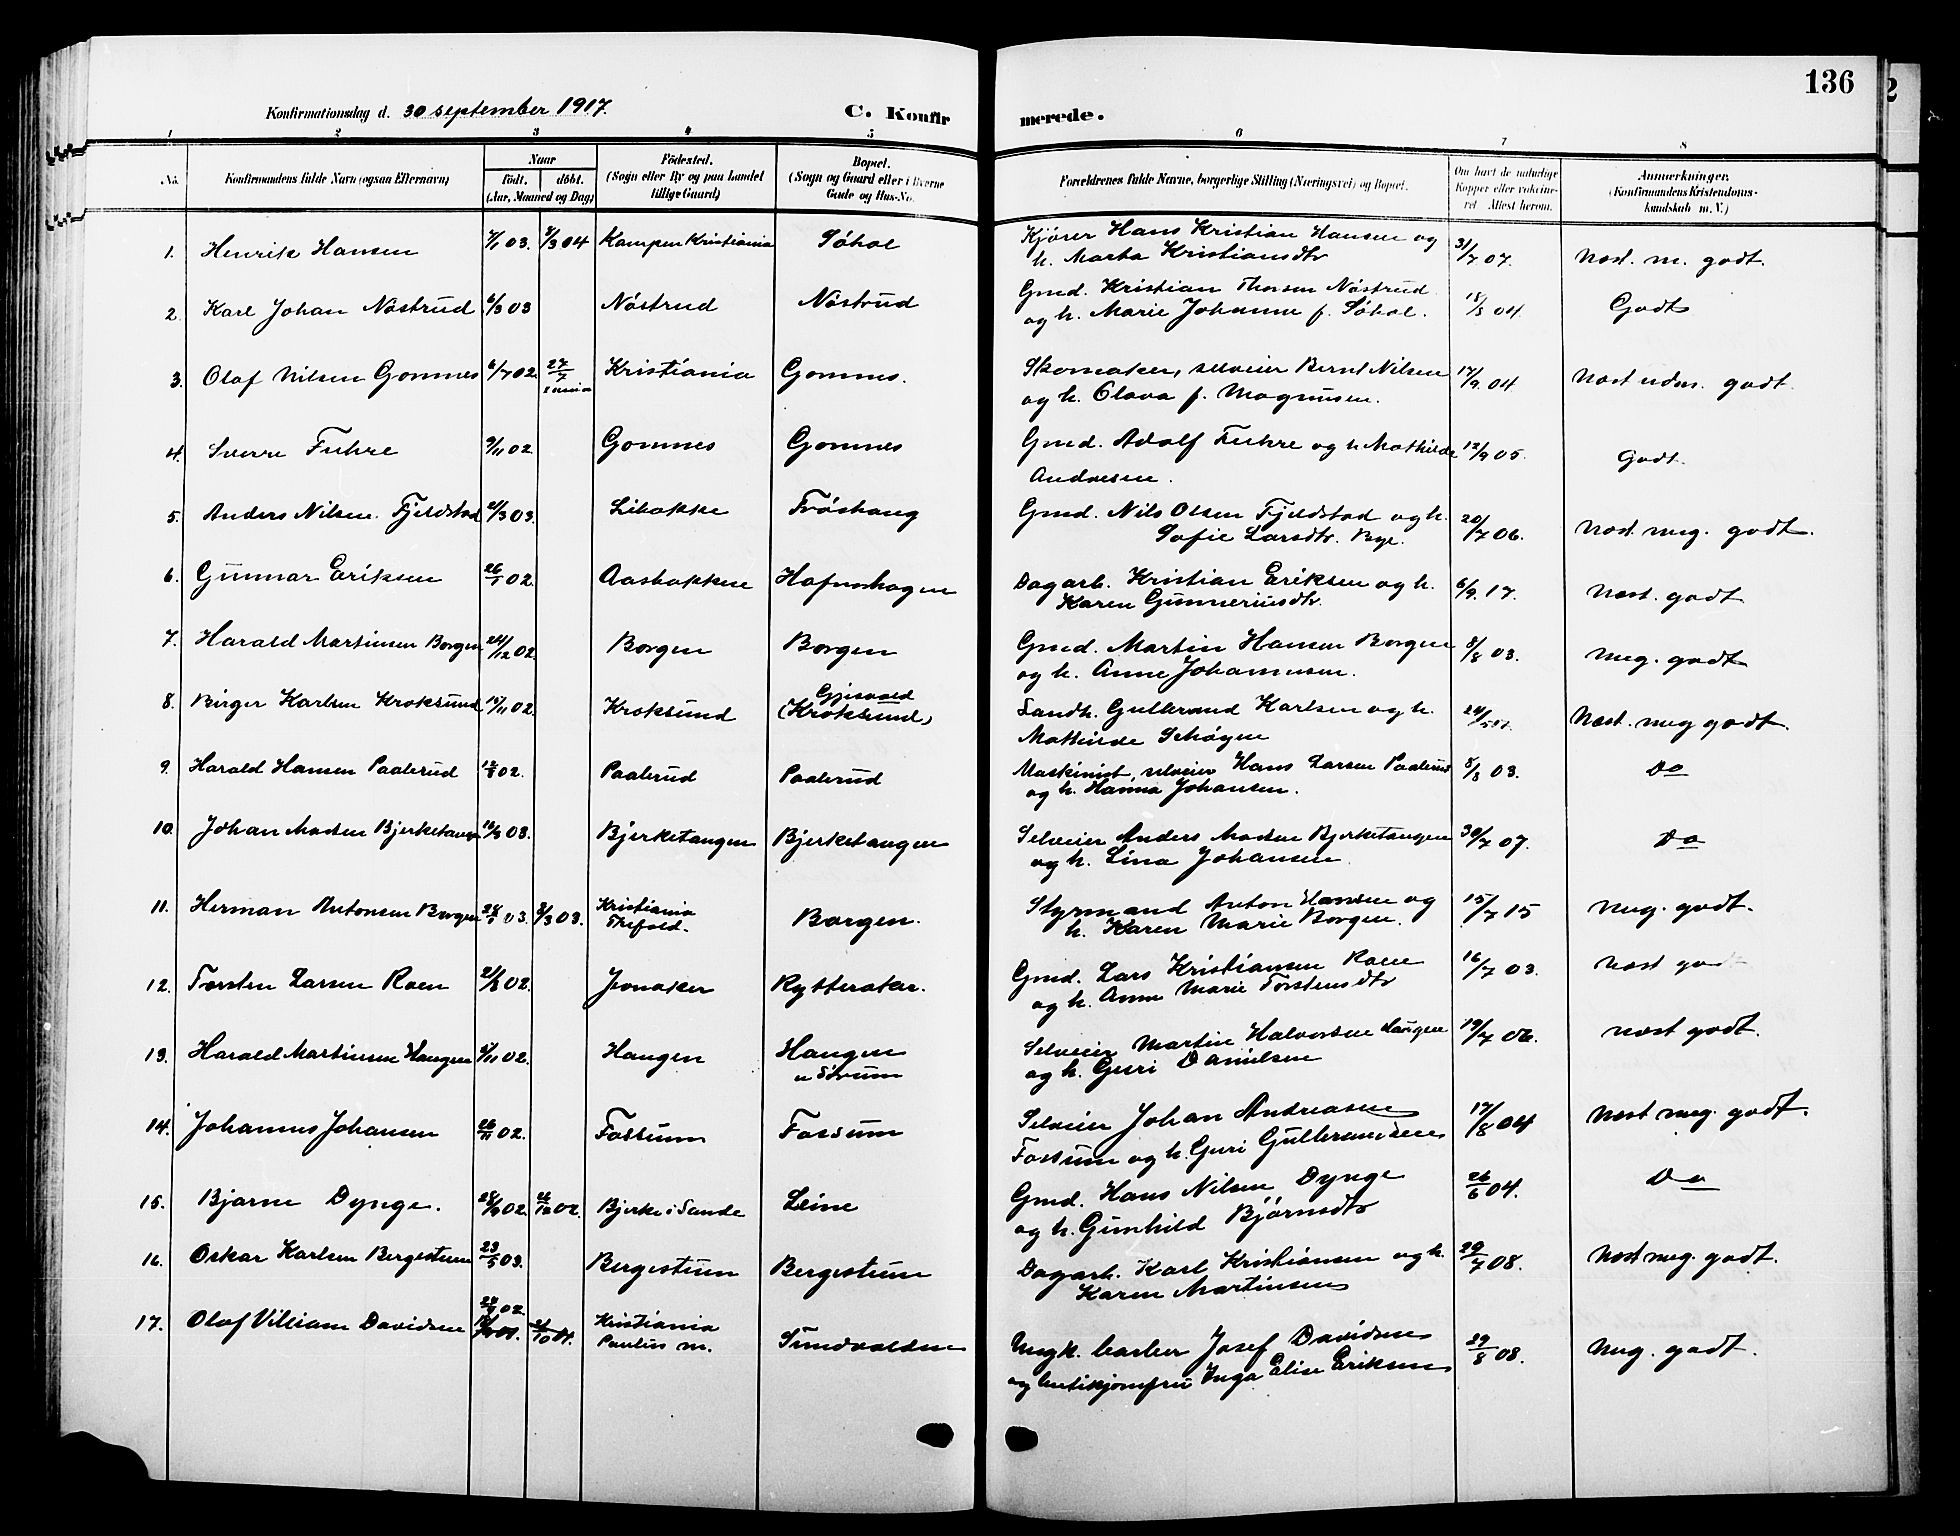 136
Konfirmationsdag d. 30 september 1917.
C. Konfirmerede.
1 2 3 4 5 6 7 8
No.
Konfirmandens fulde Navn (ogsaa Efternavn)
Naar
födt. döbt.
(Aar, Maaned og Dag)
Födested.
(Sogn eller By og paa Landet
tillige Gaard.)
Bopæl.
(Sogn og Gaard eller i Byerne
Gade og Hus-No.
Forældrenes fulde Navne, borgerlige Stilling (Næringsvei) og Bopæl.
Om havt de naturlige
Kopper eller vakcine-
ret Attest herom.
Anmærkninger.
(Konfirmandens Kristendoms-
kundskab m. V.)
1. Henrik Hansen 03. 04 Kampen Kristiania Søhol Kjører Hans Kristian Hansen og 31/7 07. Næst. m. godt.
h. Marta Kristiansdtr
2. Karl Johan Nøstrud 6/3 03 Nøstrud Nøstrud Gmd. Kristian Thorsen Nøstrud 04 Godt
og h. Marie Johanne f. Søhol.
3. Olaf Nilsen Gomnes 6/7 02 27/7 Kristiania Gomnes. Skomaker, selveier Bernt Nilsen 17/9 04 Næst udm. godt.
og h. Olava f. Magnusen.
4. Sverre Fuhre 9/11 02 Gomnes Gomnes Gmd. Adolf Fuhre og h Mathilde 12/9 05. Godt.
Andresen.
5. Anders Nilsen Fjeldstad 2/3 03. Libakke Frøshaug Gmd. Nils Olsen Fjeldstad og h. 20/7 06. Næst. meg. godt.
Sofie Larsdtr. Bye.
6. Gunnar Eriksen 26/1 02. Aasbakken Hafnshagen Dagarb. Kristian Eriksen og h. 6/9. 17. Næst. godt
Karen Gunneriusdtr.
7. Harald Martinsen Borgen 24/12 02. Borgen Borgen Gmd. Martin Hansen Borgen 8/8 03. meg. godt
og h. Anne Johannesen.
8. Birger Karlsen Kroksund 15/11 02. Kroksund Gjesvald
(Kroksund) Landh. Gulbrand Karlsen og h. Næst. meg godt.
Mathilde Schøyen
9. Harald Hansen Paalerud 12/8 02. Paalerud Paalerud Maskinist, selveier Hans Larsen Paalerud 8/8 03. Do
og h. Hanna Johansen.
10. Johan Madsen Bjerketangen 16/3 03. Bjerketangen Bjerketangen Selveier Anders Madsen Bjerketangen 30/7 07. Do
og h. Lina Johansen.
11. Herman Antonsen Borgen 28/1 03. 8/3 03. Kristiania
Trefold. Borgen. Styrmand Anton Hansen og 15/7 15 meg. godt.
h. Karen Marie Borgen.
12. Torsten Larsen Roen 21/8 02. Jevnaker Rytteraker. Gmd. Lars Kristiansen Roen 16/7 03. Næst godt
og h. Anne Marie Torstensdtr
13. Harald Martinsen Haugen 5/11 02. Haugen Haugen
u Sørum Selveier Martin Halvorsen Haugen 19/7 06. næst godt.
og h. Guri Danielsen
14. Johannes Johansen 26/11 02. Fossum Fossum Selveier Johan Andreasen 17/8 04 Næst meg. godt.
Fossum og h. Guri Gulbrandsen
15. Bjarne Dynge. 28/9 02. 26/12 02. Bjerke i Sande Leine Gmd. Hans Nilsen Dynge 26/6 04. Do
og h. Gunhild Bjørnsdtr
16. Oskar Karlsen Bergestuen 23/5 03. Bergestuen Bergestuen Dagarb. Karl Kristiansen og h. 29/7 08. Næst meg. godt.
Karen Martinsen
17. Olaf Villiam Davidsen 02. Kristiania
Paulus m. Sundvolden Ungk. barber Josef Davidsen 29/8 08. Meg. godt.
og butikjomfru Inga Elise Eriksen